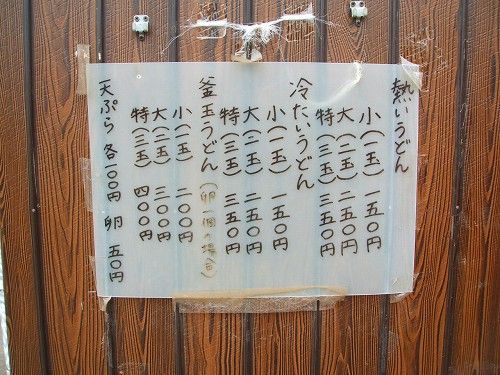 熱いうどん
小(一玉) 一五〇円
大(二玉) 二五〇円
特(三玉) 三五〇円
冷たいうどん
小(一玉) 一五〇円
大(二玉) 二五〇円
特(三玉) 三五〇円
釜玉うどん(卵一個の場合)
小(一玉) 二〇〇円
大(二玉) 三〇〇円
特(三玉) 四〇〇円
天ぷら 各一〇〇円 卵 五〇円